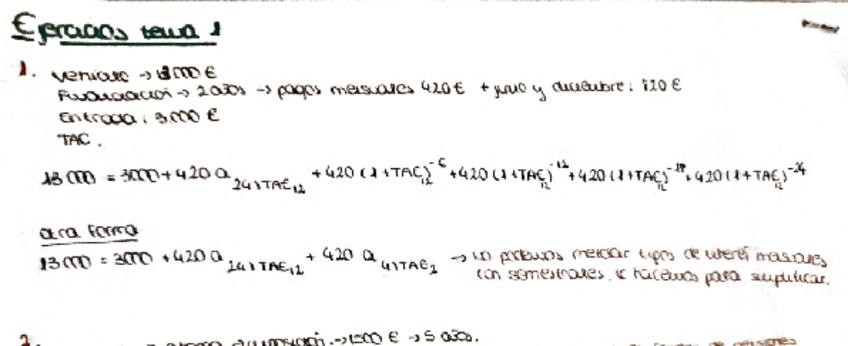 Ejercicios tema 1
1. Vehículo → 13000 €
Financiación → 2 años → pagos mensuales 420 € + junio y diciembre: 120 €
Entrada: 3.000 €
TAE.
13000 = 3000 + 420 a 24⌉TAE₁₂ + 420 (1 + TAE₁₂)⁻⁶ + 420 (1 + TAE₁₂)⁻¹² + 420 (1 + TAE₁₂)⁻¹⁸ + 420 (1 + TAE₁₂)⁻²⁴
otra forma
13000 = 3000 + 420 a 24⌉TAE₁₂ + 420 a 4⌉TAE₂ → no podemos mezclar tipos de interés mensuales
con semestrales. lo hacemos para simplificar.
2. → 1500 € → 5 años.